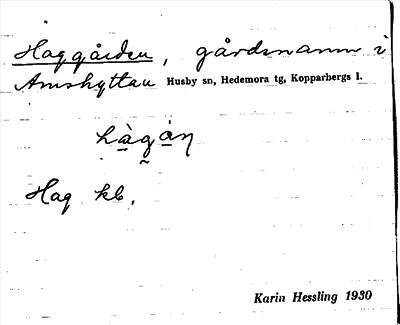 Haggården, gårdsnamn i
Amshyttan Husby sn, Hedemora tg, Kopparbergs l.
hàgán
Hag kb.
Karin Hessling 1930